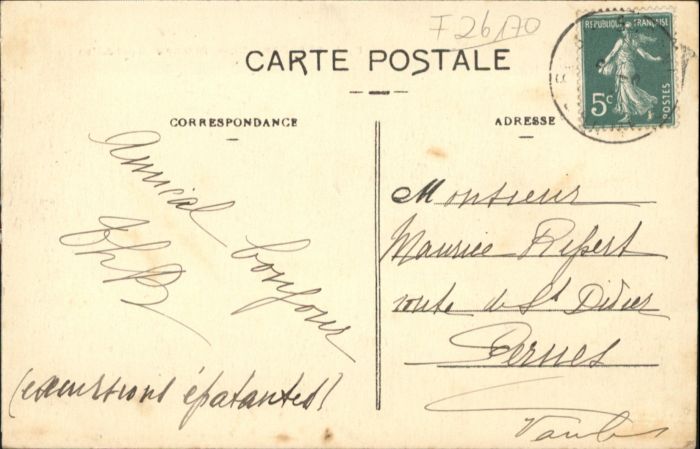 F 26170
CARTE POSTALE
REPUBLIQUE FRANÇAISE
5c
POSTES
CORRESPONDANCE
ADRESSE
Amical bonjour
(excursions épatantes)
Monsieur
Maurice Ripert
route de St Didier
Pernes